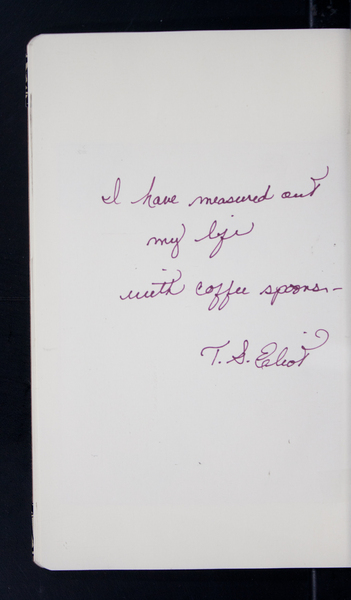 I have measured out
my life
with coffee spoons. –
T. S. Eliot